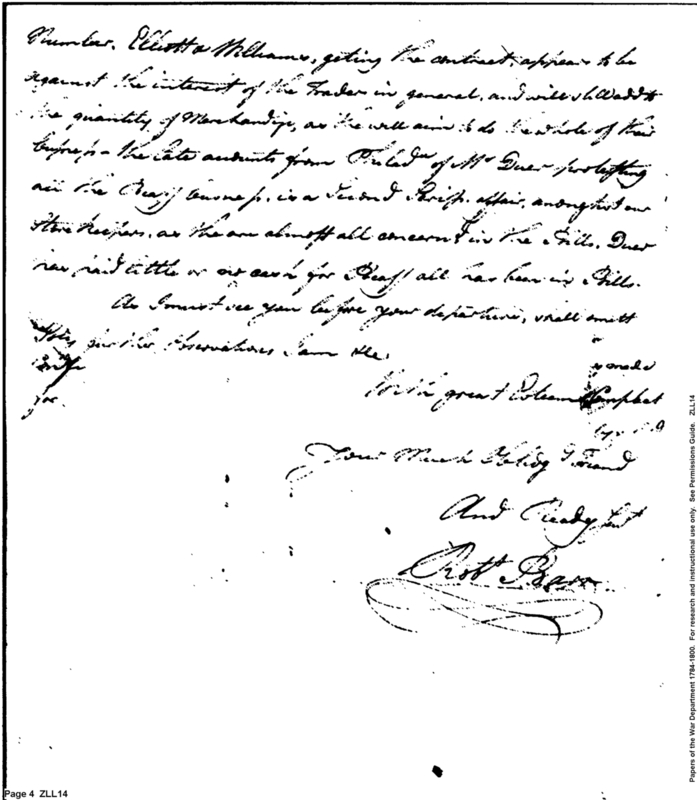 Number. Elliott & Williams, geting the contract, appears to be
against the interest of the Trader in general, and will still add to
the quantity of Merchandize, as the will aim to do the whole of their
business - the late accounts from Philada of Mr Duer protesting
all the business, is a Second affair, amongst our
Store keepers, as the are almost all concern'd in the Bills. Duer
has paid little or no cash for all has been in Bills.
As I must see you before your departure, shall omitt
further observations I am
made
for
With great Esteem
Your Much Oblidg'd Friend
And Ready Sert
Robt Barr
Page 4 ZLL14
Papers of the War Department 1784-1800. For research and instructional use only. See Permissions Guide. ZLL14